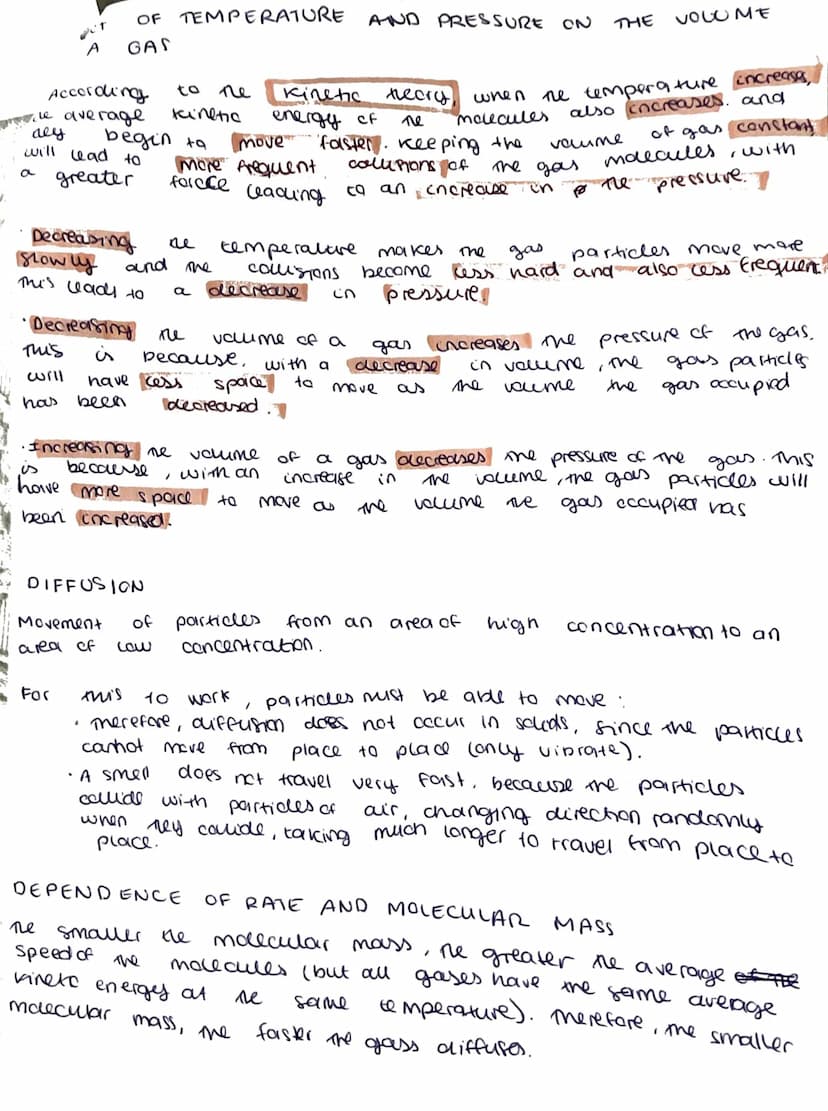 OF TEMPERATURE AND PRESSURE ON THE VOLUME
A GAS
According to the kinetic theory, when the temperature increases,
average kinetic energy of the molecules also increases. and
they begin to move faster. Keeping the volume of gas constant,
will lead to more frequent collisions of the gas molecules, with
a greater force leading to an increase in the pressure.
· Decreasing the temperature makes the gas particles move more
slowly and the collisions become less hard and also less frequent.
This leads to a decrease in pressure.
· Decreasing the volume of a gas increases the pressure of the gas.
This is because, with a decrease in volume, the gas particles
will have less space to move as the volume the gas occupied
has been decreased.
· Increasing the volume of a gas decreases the pressure of the gas. This
is because, with an increase in the volume, the gas particles will
have more space to move as the volume the gas occupied has
been increased.
DIFFUSION
Movement of particles from an area of high concentration to an
area of low concentration.
For this to work, particles must be able to move:
· Therefore, diffusion does not occur in solids, since the particles
cannot move from place to place (only vibrate).
· A smell does not travel very fast, because the particles
collide with particles of air, changing direction randomly
when they collide, taking much longer to travel from place to
place.
DEPENDENCE OF RATE AND MOLECULAR MASS
The smaller the molecular mass, the greater the average
speed of the molecules (but all gases have the same average
kinetic energy at the same temperature). Therefore, the smaller
molecular mass, the faster the gass diffuses.